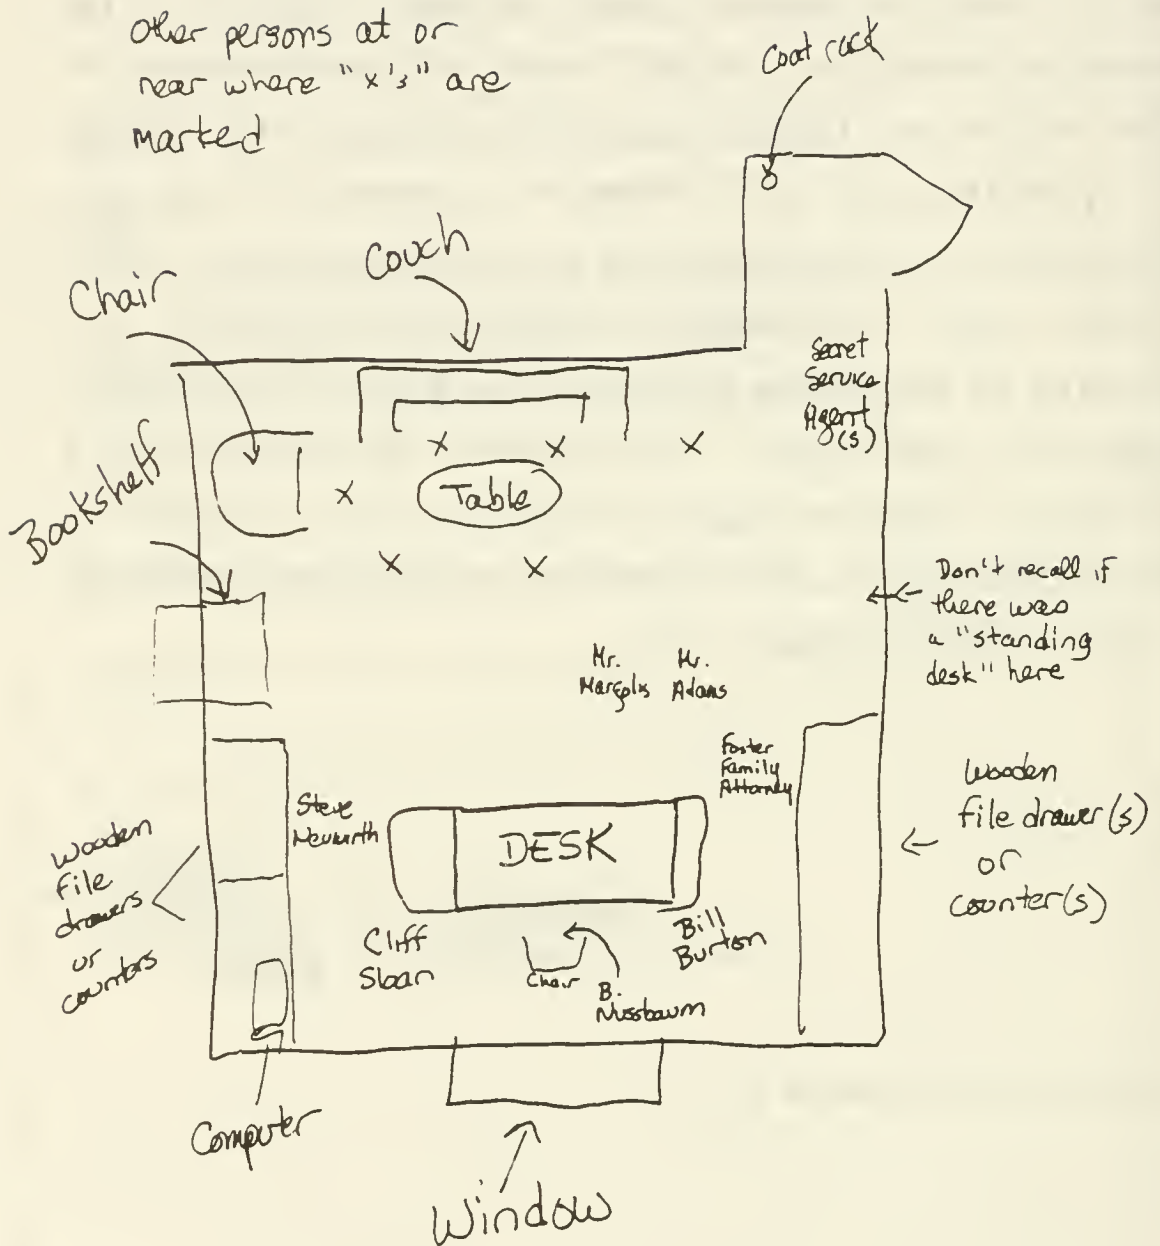 Other persons at or
near where "x's" are
marked
Coat rack
Couch
Chair
Secret
Service
Agent
(s)
x x x
Bookshelf
x
Table
x x
Don't recall if
there was
a "standing
desk" here
Mr.
Margolis
Mr.
Adams
Foster
Family
Attorney
Wooden
file drawer(s)
or
counter(s)
Steve
Neuwirth
DESK
Wooden
file
drawers
or
counters
Cliff
Sloan
Chair
B.
Nussbaum
Bill
Burton
Computer
Window